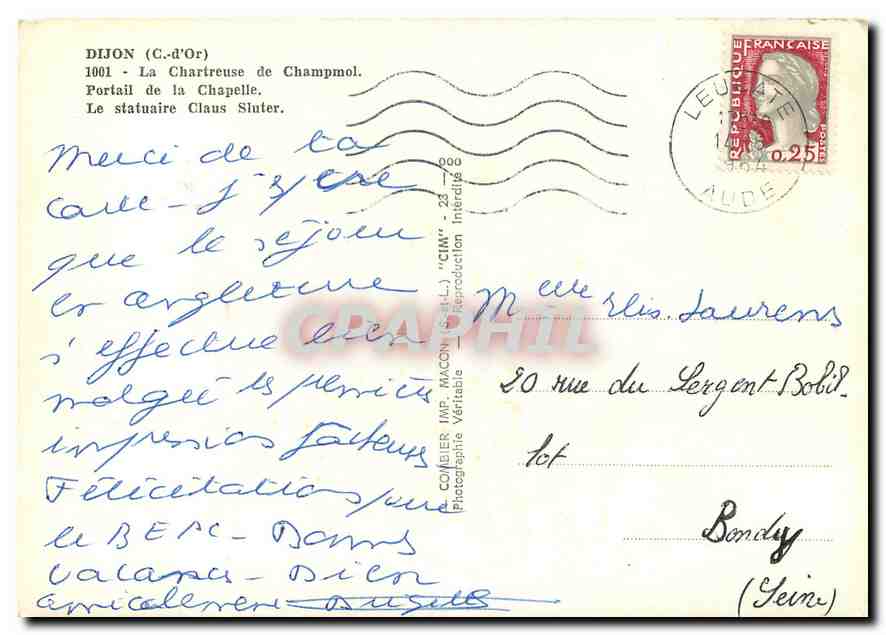 DIJON (C.-d'Or)
1001 - La Chartreuse de Champmol.
Portail de la Chapelle.
Le statuaire Claus Sluter.
Merci de la
carte - J'espère
que le séjour
en angleterre
s'effectue bien
malgré les premières
impressions fâcheuses
Félicitations pour
le BEPC - Bonnes
vacances - Bien
amicalement
COMBIER IMP. MACON (S.-et-L.) "CIM" - 23 - ooo
Photographie Véritable - Reproduction Interdite
REPUBLIQUE FRANÇAISE
POSTES
0,25
LEUCATE
14
1964
AUDE
Laurens
20 rue du Sergent Bobil-
lot
Bondy
(Seine)
CPAPHIL